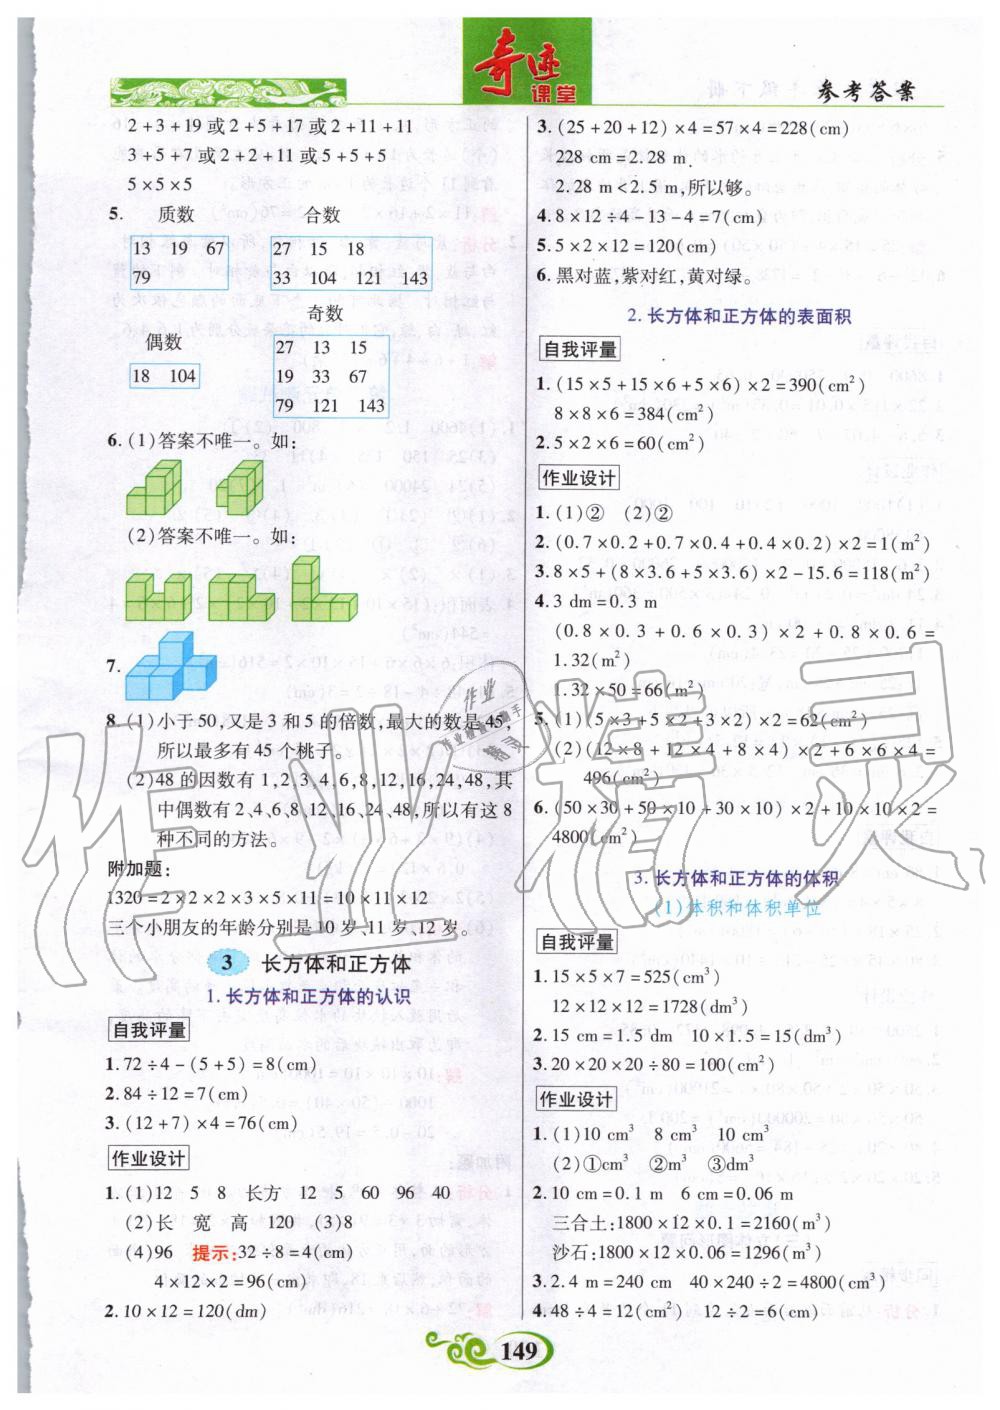 奇迹
课堂
参考答案
2+3+19 或 2+5+17 或 2+11+11
3+5+7 或 2+2+11 或 5+5+5
5×5×5
5. 质数 合数
13 19 67
79
27 15 18
33 104 121 143
偶数 奇数
18 104
27 13 15
19 33 67
79 121 143
6. (1)答案不唯一。如:
(2)答案不唯一。如:
7.
8. (1)小于50,又是 3 和 5 的倍数,最大的数是 45,
所以最多有 45 个桃子。
(2)48 的因数有 1,2,3,4,6,8,12,16,24,48,其
中偶数有 2、4、6、8、12、16、24、48,所以有这 8
种不同的方法。
附加题:
1320=2×2×2×3×5×11=10×11×12
三个小朋友的年龄分别是 10 岁、11 岁、12 岁。
3 长方体和正方体
1. 长方体和正方体的认识
自我评量
1. 72÷4-(5+5)=8(cm)
2. 84÷12=7(cm)
3. (12+7)×4=76(cm)
作业设计
1. (1)12 5 8 长方 12 5 60 96 40
(2)长 宽 高 120 (3)8
(4)96 提示:32÷8=4(cm)
4×12×2=96(cm)
2. 10×12=120(dm)
3. (25+20+12)×4=57×4=228(cm)
228 cm=2.28 m.
2.28 m<2.5 m,所以够。
4. 8×12÷4-13-4=7(cm)
5. 5×2×12=120(cm)
6. 黑对蓝,紫对红,黄对绿。
2. 长方体和正方体的表面积
自我评量
1. (15×5+15×6+5×6)×2=390(cm²)
8×8×6=384(cm²)
2. 5×2×6=60(cm²)
作业设计
1. (1)② (2)②
2. (0.7×0.2+0.7×0.4+0.4×0.2)×2=1(m²)
3. 8×5+(8×3.6+5×3.6)×2-15.6=118(m²)
4. 3 dm=0.3 m
(0.8×0.3+0.6×0.3)×2+0.8×0.6=
1.32(m²)
1.32×50=66(m²)
5. (1)(5×3+5×2+3×2)×2=62(cm²)
(2)(12×8+12×4+8×4)×2+6×6×4=
496(cm²)
6. (50×30+50×10+30×10)×2+10×10×2=
4800(cm²)
3. 长方体和正方体的体积
(1)体积和体积单位
自我评量
1. 15×5×7=525(cm³)
12×12×12=1728(dm³)
2. 15 cm=1.5 dm 10×1.5=15(dm³)
3. 20×20×20÷80=100(cm²)
作业设计
1. (1)10 cm³ 8 cm³ 10 cm³
(2)①cm³ ②m³ ③dm³
2. 10 cm=0.1 m 6 cm=0.06 m
三合土:1800×12×0.1=2160(m³)
沙石:1800×12×0.06=1296(m³)
3. 2.4 m=240 cm 40×240÷2=4800(cm³)
4. 48÷4=12(cm²) 12÷2=6(cm)
149
作业精灵